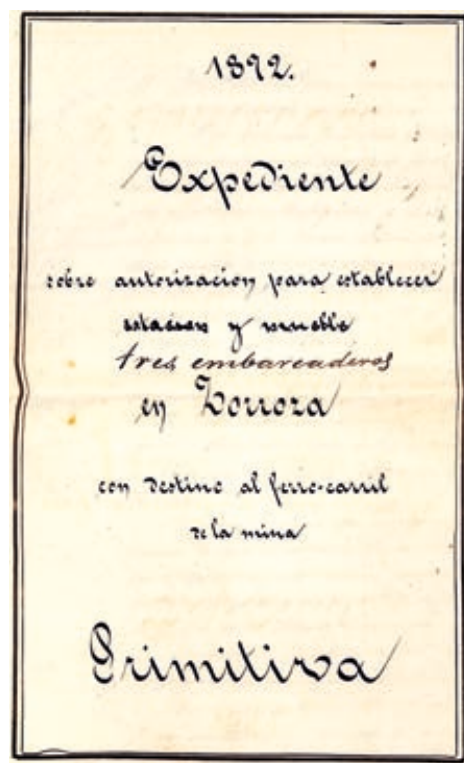 1892.
Expediente
sobre autorizacion para establecer
estacion y muelle
tres embarcaderos
en Zorroza
con destino al ferro-carril
de la mina
Primitiva